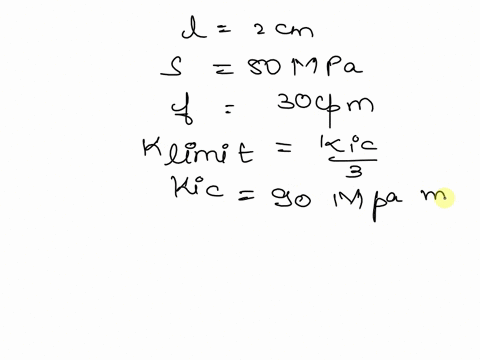 l = 2 cm
S = 80 MPa
f = 30cpm
Klimit = Kic/3
Kic = 90 Mpa m